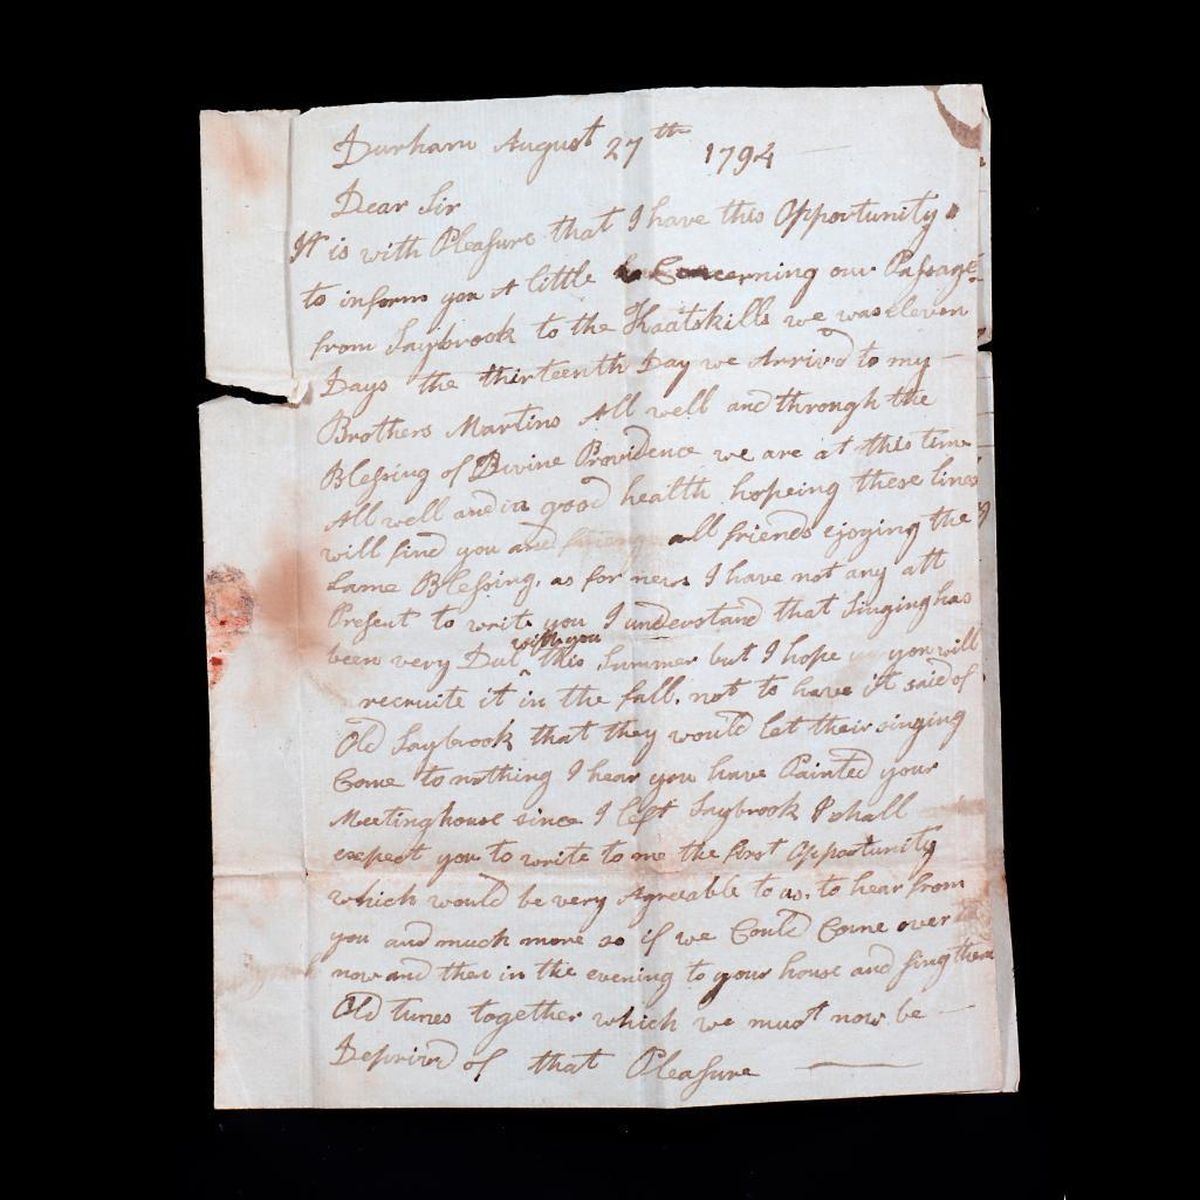 Durham August 27th 1794
Dear Sir
It is with Pleasure that I have this Opportunity
to inform you A little Concerning our Passage
from Saybrook to the Kaatskills we was eleven
Days the thirteenth Day we Arrivd to my
Brothers Martins All well and through the
Blessing of Divine Providence we are at this time
All well and in good health hopeing these lines
will find you and all friends ejoying the
same Blessing, as for news I have not any att
Present to write you I understand that Singing has
been very Dul this Summer but I hope you will
with you
recruite it in the fall, not to have it said of
Old Saybrook that they would let their singing
Come to nothing I hear you have Painted your
Meetinghouse since I left Saybrook I shall
expect you to write to me the first Opportunity
which would be very Agreable to us, to hear from
you and much more so if we Could Come over
now and then in the evening to your house and sing them
Old tunes together which we must now be
Deprivd of that Pleasure